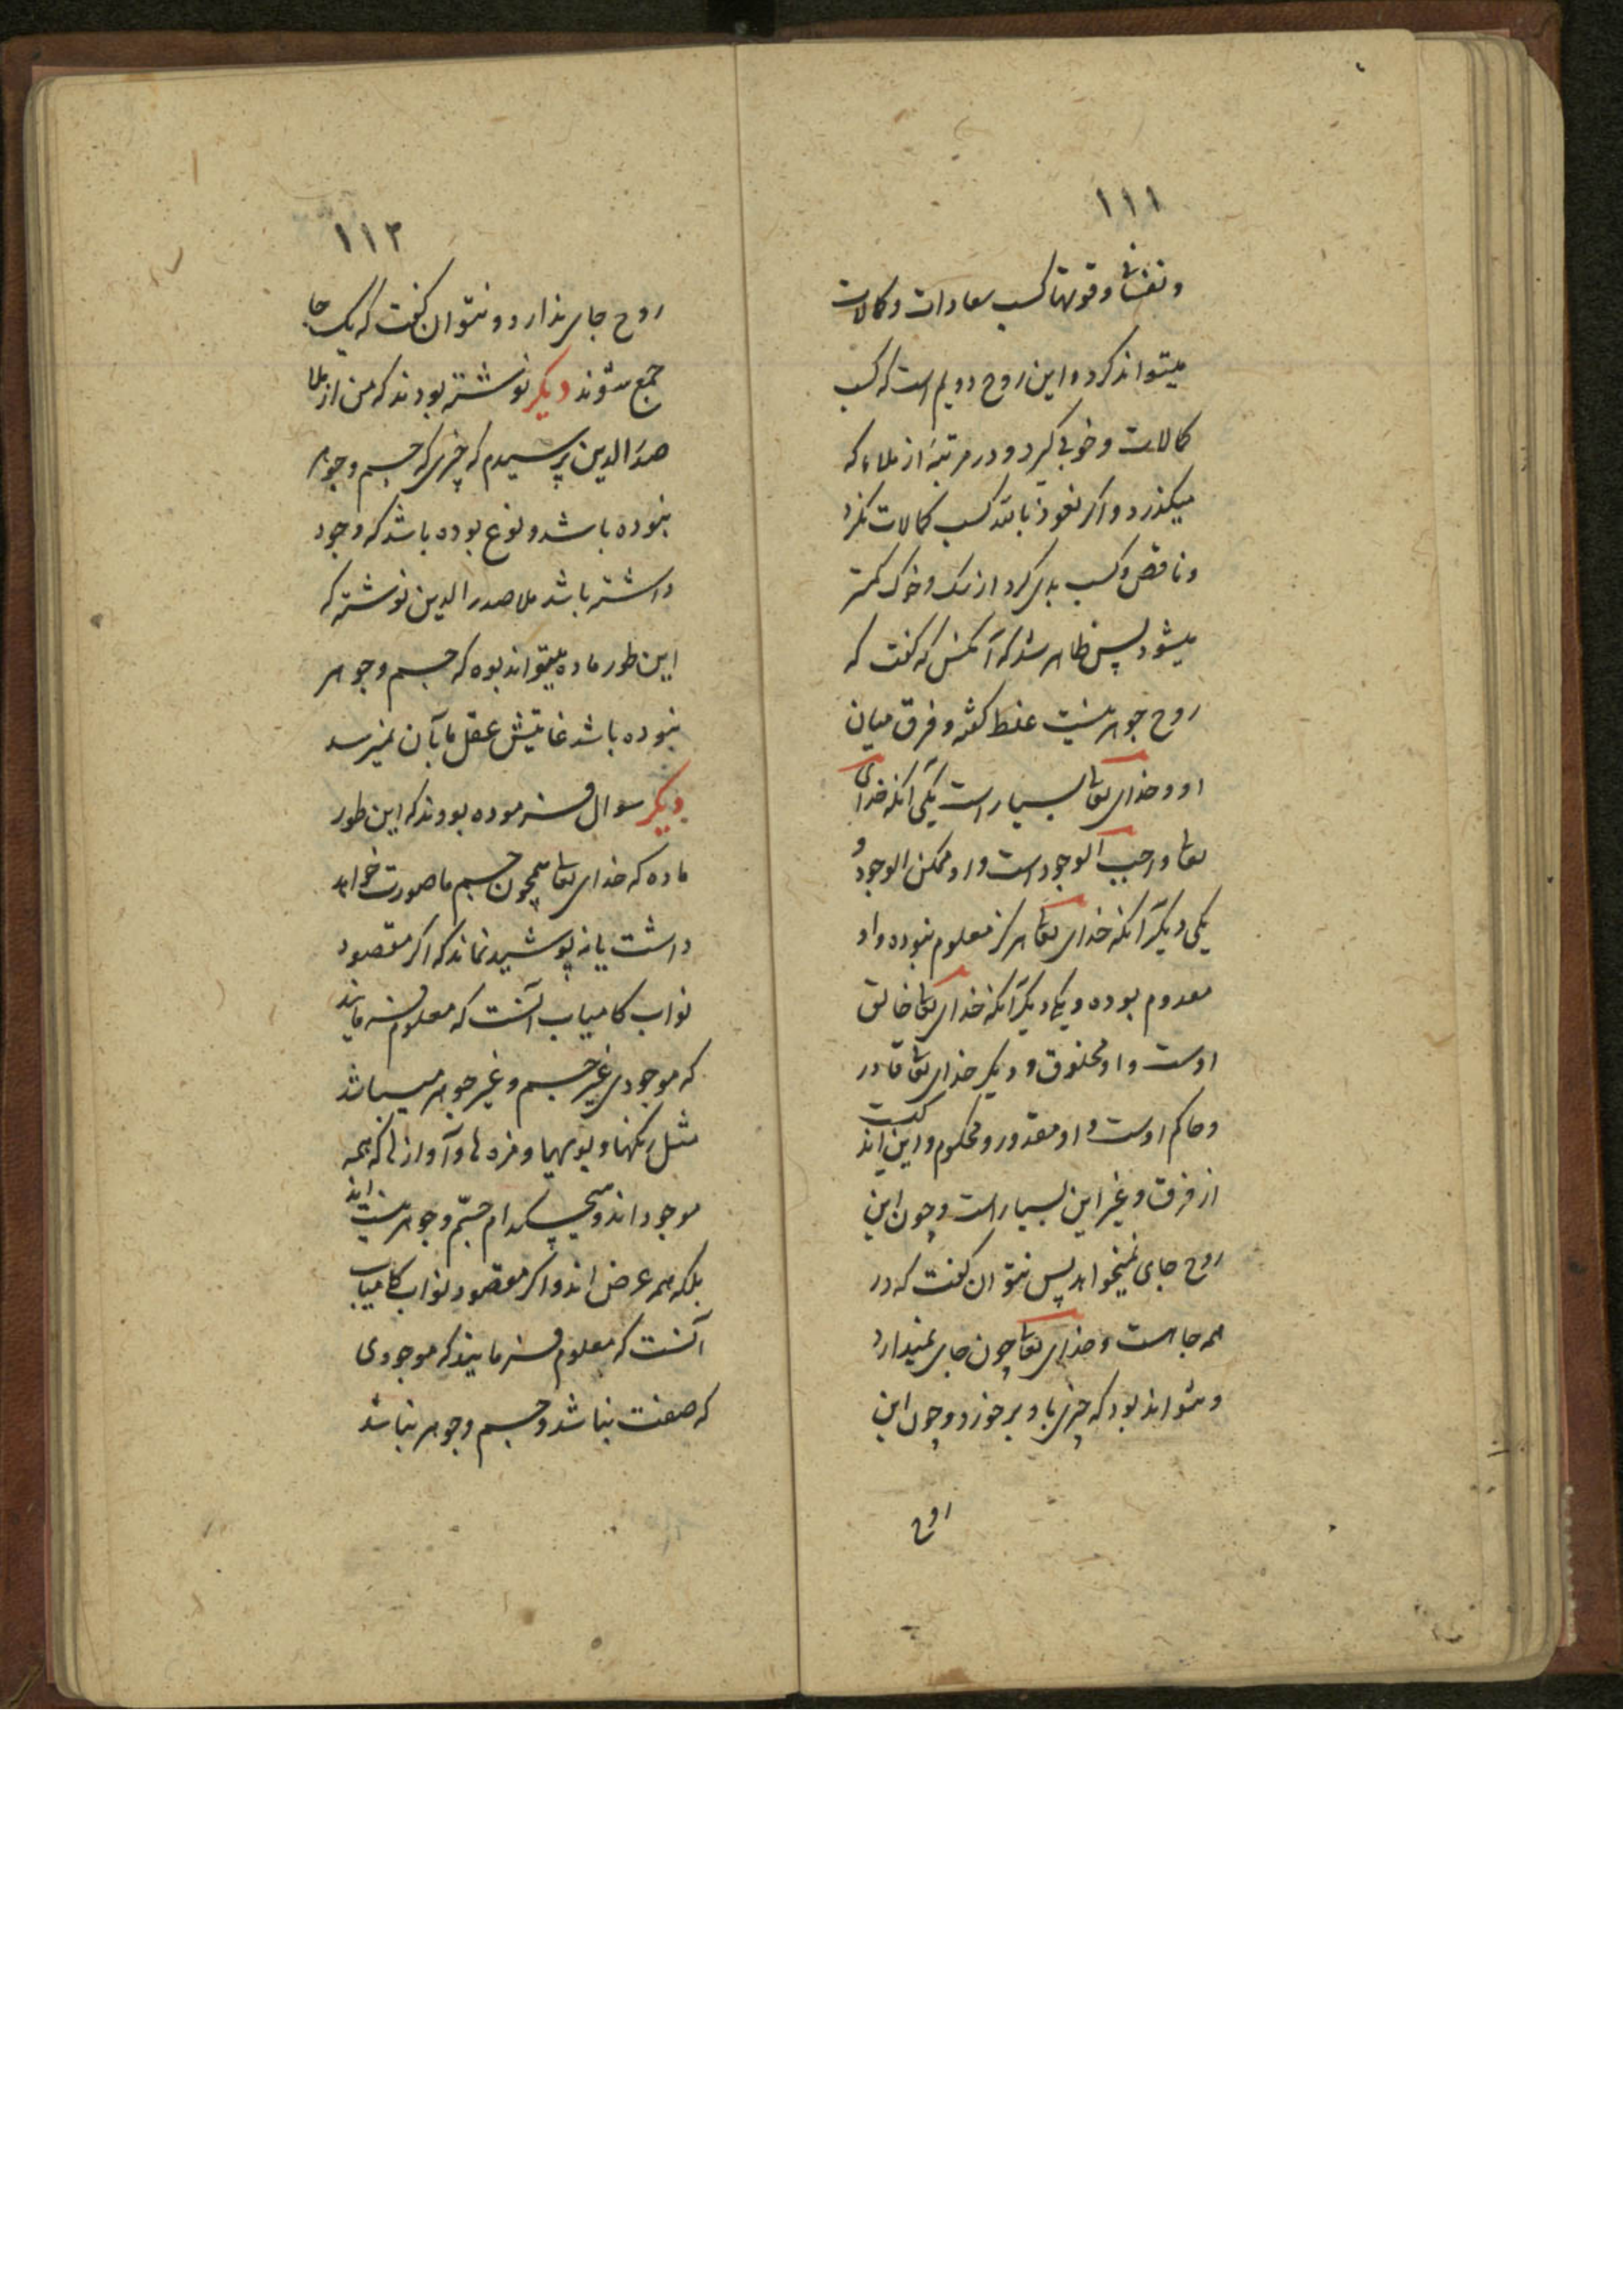 ۱۱۱
و نفسانی و قوتها کسب سعادات و کمالات
میتواند کرد و این روح دویم است که کسب
کمالات و خوبی کرد و در مرتبهٔ از ملائکه
میگذرد و اگر نعوذ بالله کسب کمالات نکرد
و ناقص و کسب بدی کرد از سک و خوک کمتر
میشود پس ظاهر شد که آنکس که گفت که
روح جوهر نیست غلط گفته و فرق میان
او و خدای تعالی بسیار است یکی آنکه خدای
تعالی واجب الوجود است و او ممکن الوجود و
یکی دیگر آنکه خدای تعالی هرگز معدوم نبوده و او
معدوم بوده و یکی دیگر آنکه خدای تعالی خالق
اوست و او مخلوق و دیگر خدای تعالی قادر
و حاکم اوست و او مقدور و محکوم و این اند کیست
از فرق و غیر این بسیار است و چون این
روح جای نمیخواهد پس نتوان گفت که در
همه جا هست و خدای تعالی چون جای نمیدارد
و نتواند بود که چیزی باو برخورد و چون این
روح
۱۱۲
روح جای ندارد و نتوان گفت که یک جا
جمع شوند دیگر نوشته بودند که من از ملا
صدرالدین پرسیدم که چیزی که جسم و جوهر
نبوده باشد و نوع بوده باشد که وجود
داشته باشد ملا صدرالدین نوشته که
این طور ماده میتواند بوده که جسم و جوهر
نبوده باشد غایتش عقل ما بآن نمیرسد
دیگر سوال فرموده بودند که این طور
ماده که خدای تعالی همچون جسم ما صورت خواهد
داشت یا نه پوشیده نماند که اگر مقصود
نواب کامیاب آنست که معلوم فرمایند
که موجودی غیر جسم و غیر جوهر میباشد
مثل رنگها و بویها و مزه ها و آوازها که همه
موجود اند و هیچکدام جسم و جوهر نیست اند
بلکه همه عرض اند و اگر مقصود نواب کامیاب
آنست که معلوم فرمایند که موجودی
که صفت نباشد و جسم و جوهر نباشد